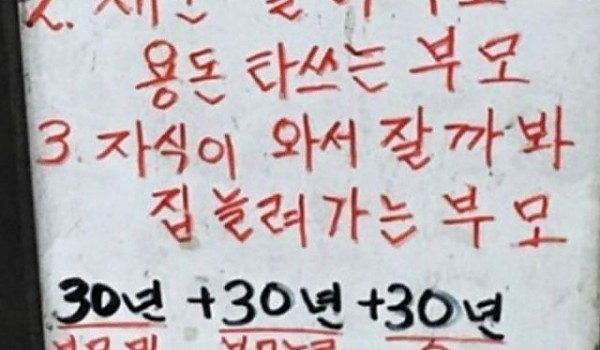 2.
용돈 타쓰는 부모
3. 자식이 와서 잘까봐
집 늘려가는 부모
30년 +30년 +30년